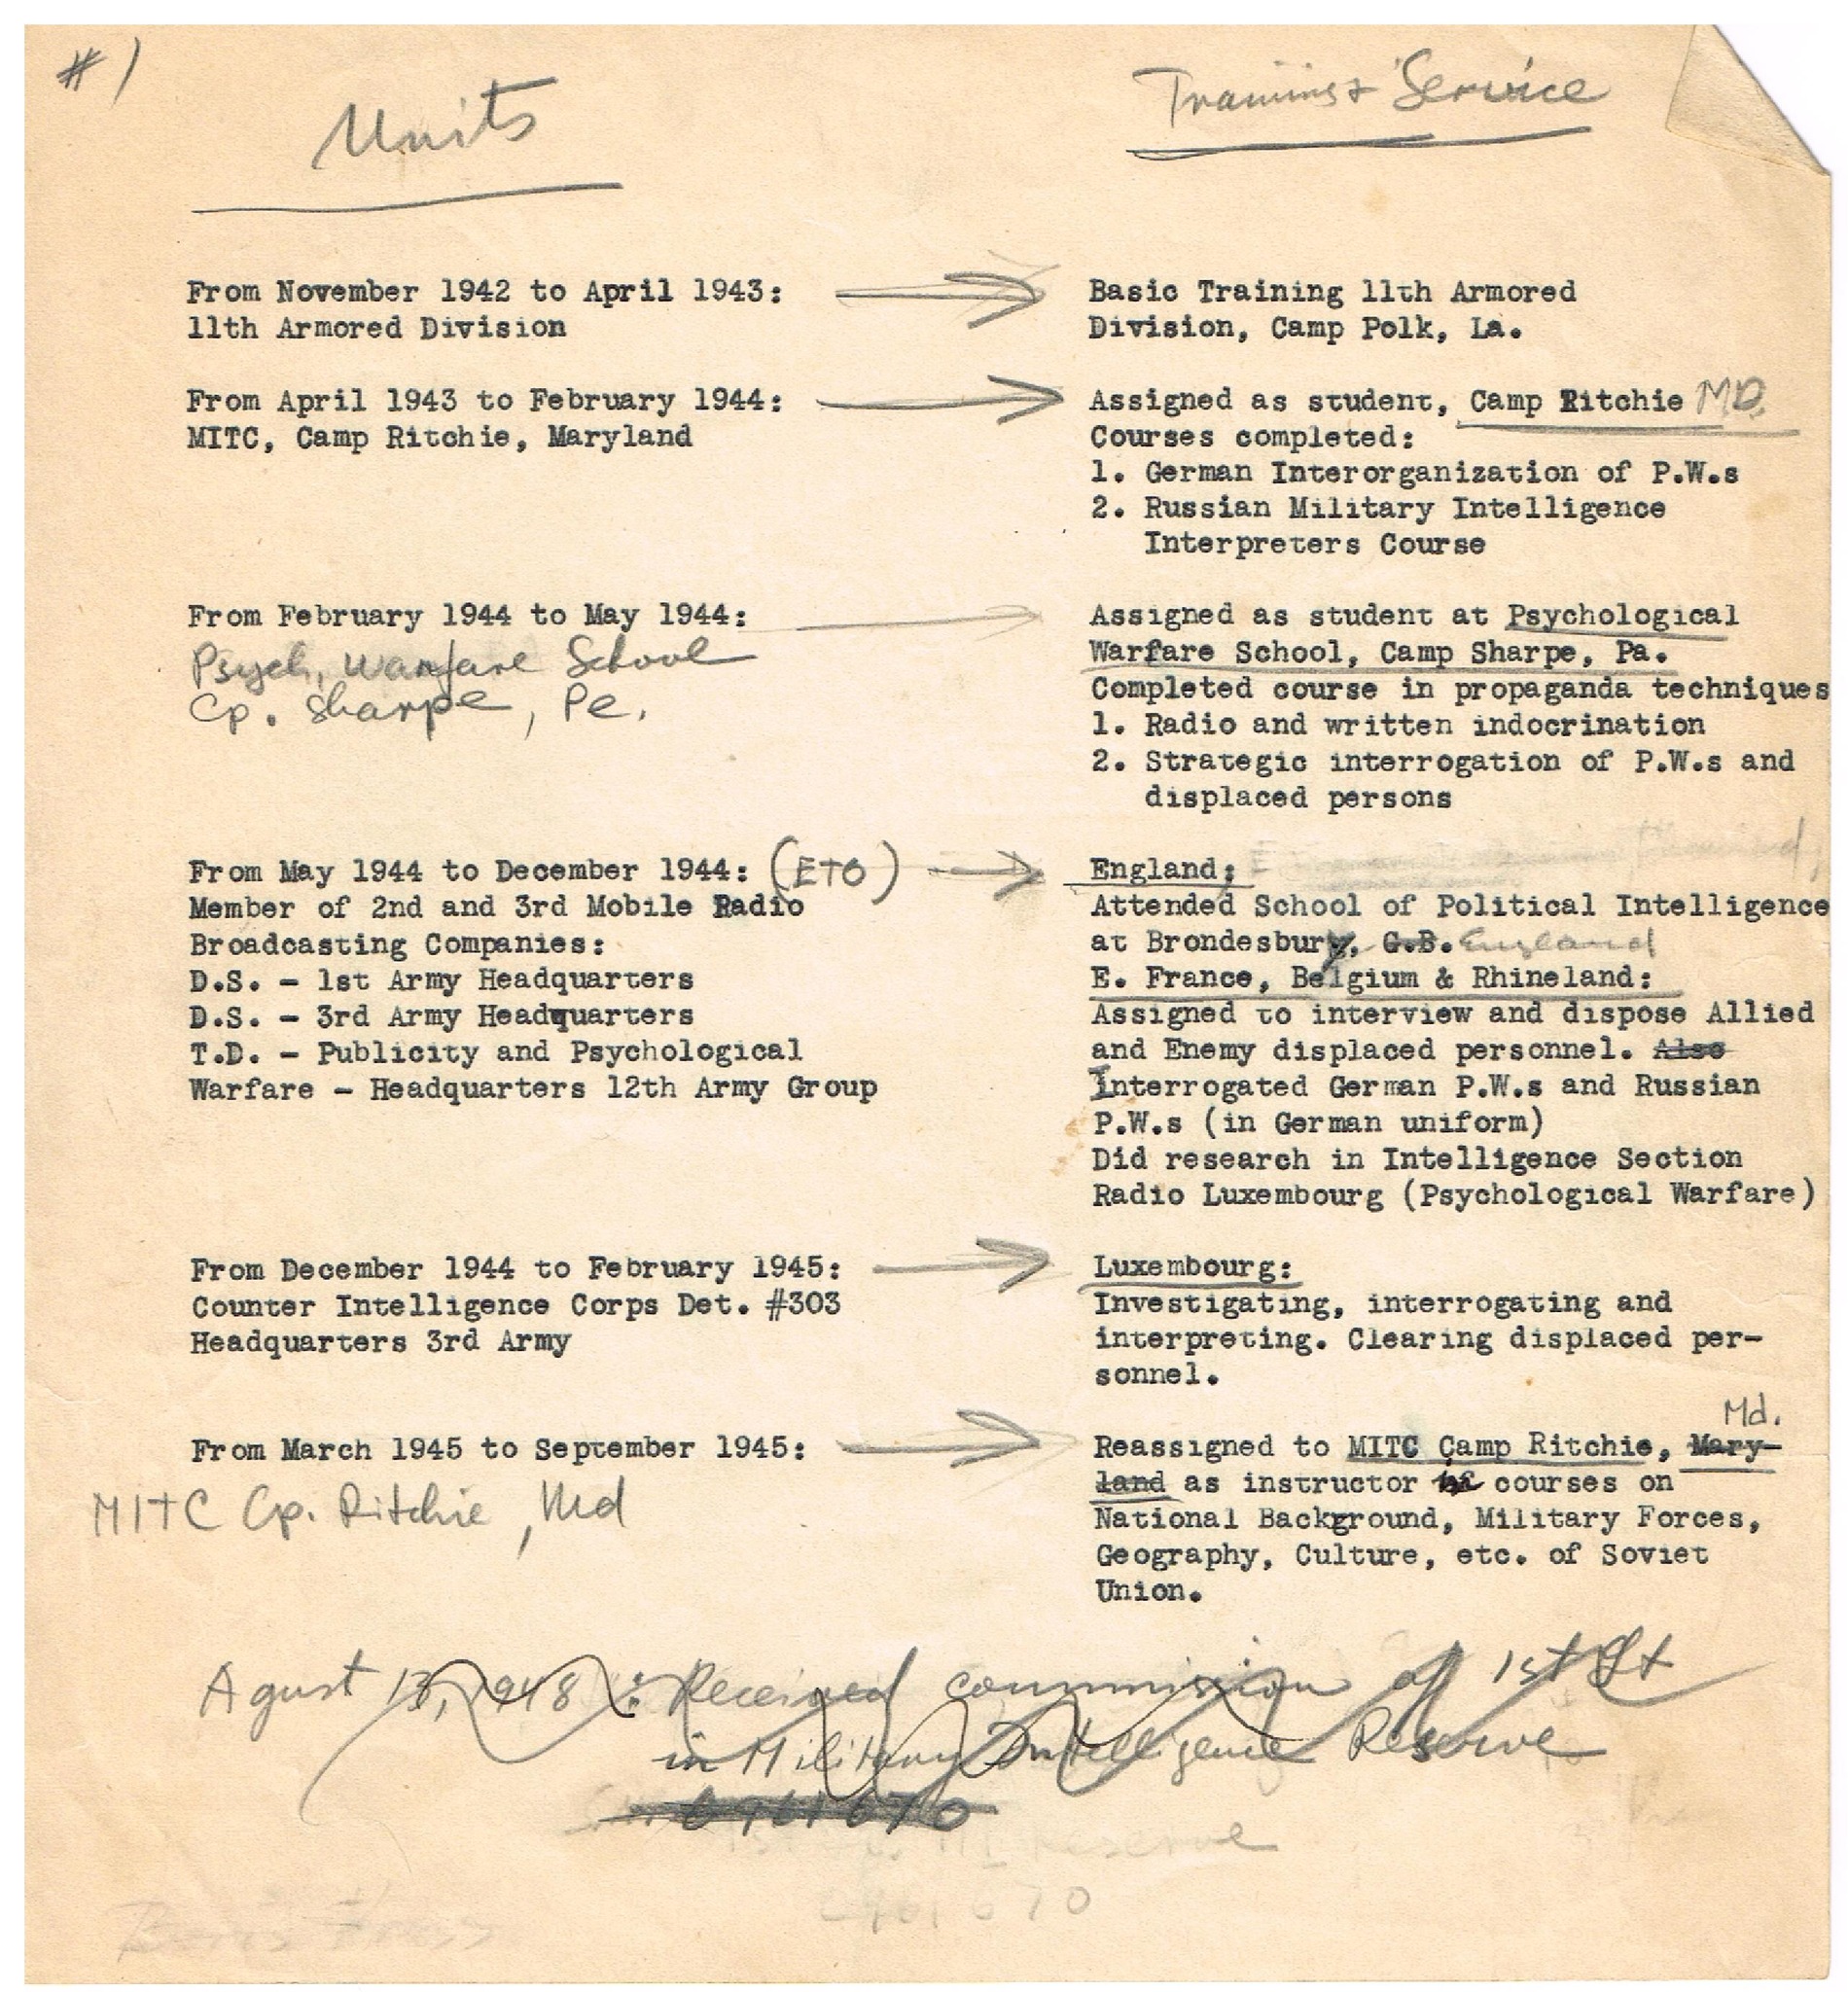 #1
Units
Training + Service
From November 1942 to April 1943:
11th Armored Division
Basic Training 11th Armored
Division, Camp Polk, La.
From April 1943 to February 1944:
MITC, Camp Ritchie, Maryland
Assigned as student, Camp Ritchie MD.
Courses completed:
1. German Interorganization of P.W.s
2. Russian Military Intelligence
Interpreters Course
From February 1944 to May 1944:
Psych. Warfare School
Cp. Sharpe, Pe.
Assigned as student at Psychological
Warfare School, Camp Sharpe, Pa.
Completed course in propaganda techniques
1. Radio and written indocrination
2. Strategic interrogation of P.W.s and
displaced persons
From May 1944 to December 1944: (ETO)
Member of 2nd and 3rd Mobile Radio
Broadcasting Companies:
D.S. - 1st Army Headquarters
D.S. - 3rd Army Headquarters
T.D. - Publicity and Psychological
Warfare - Headquarters 12th Army Group
England:
Attended School of Political Intelligence
at Brondesbury, G.B. England
E. France, Belgium & Rhineland:
Assigned to interview and dispose Allied
and Enemy displaced personnel. Also
Interrogated German P.W.s and Russian
P.W.s (in German uniform)
Did research in Intelligence Section
Radio Luxembourg (Psychological Warfare)
From December 1944 to February 1945:
Counter Intelligence Corps Det. #303
Headquarters 3rd Army
Luxembourg:
Investigating, interrogating and
interpreting. Clearing displaced per-
sonnel.
From March 1945 to September 1945:
MITC Cp. Ritchie, Md
Md.
Reassigned to MITC Camp Ritchie, Mary-
land as instructor courses on
National Background, Military Forces,
Geography, Culture, etc. of Soviet
Union.
Agust 13, 1948: Received commission of 1st Lt
in Military Intelligence Reserve
Reserve